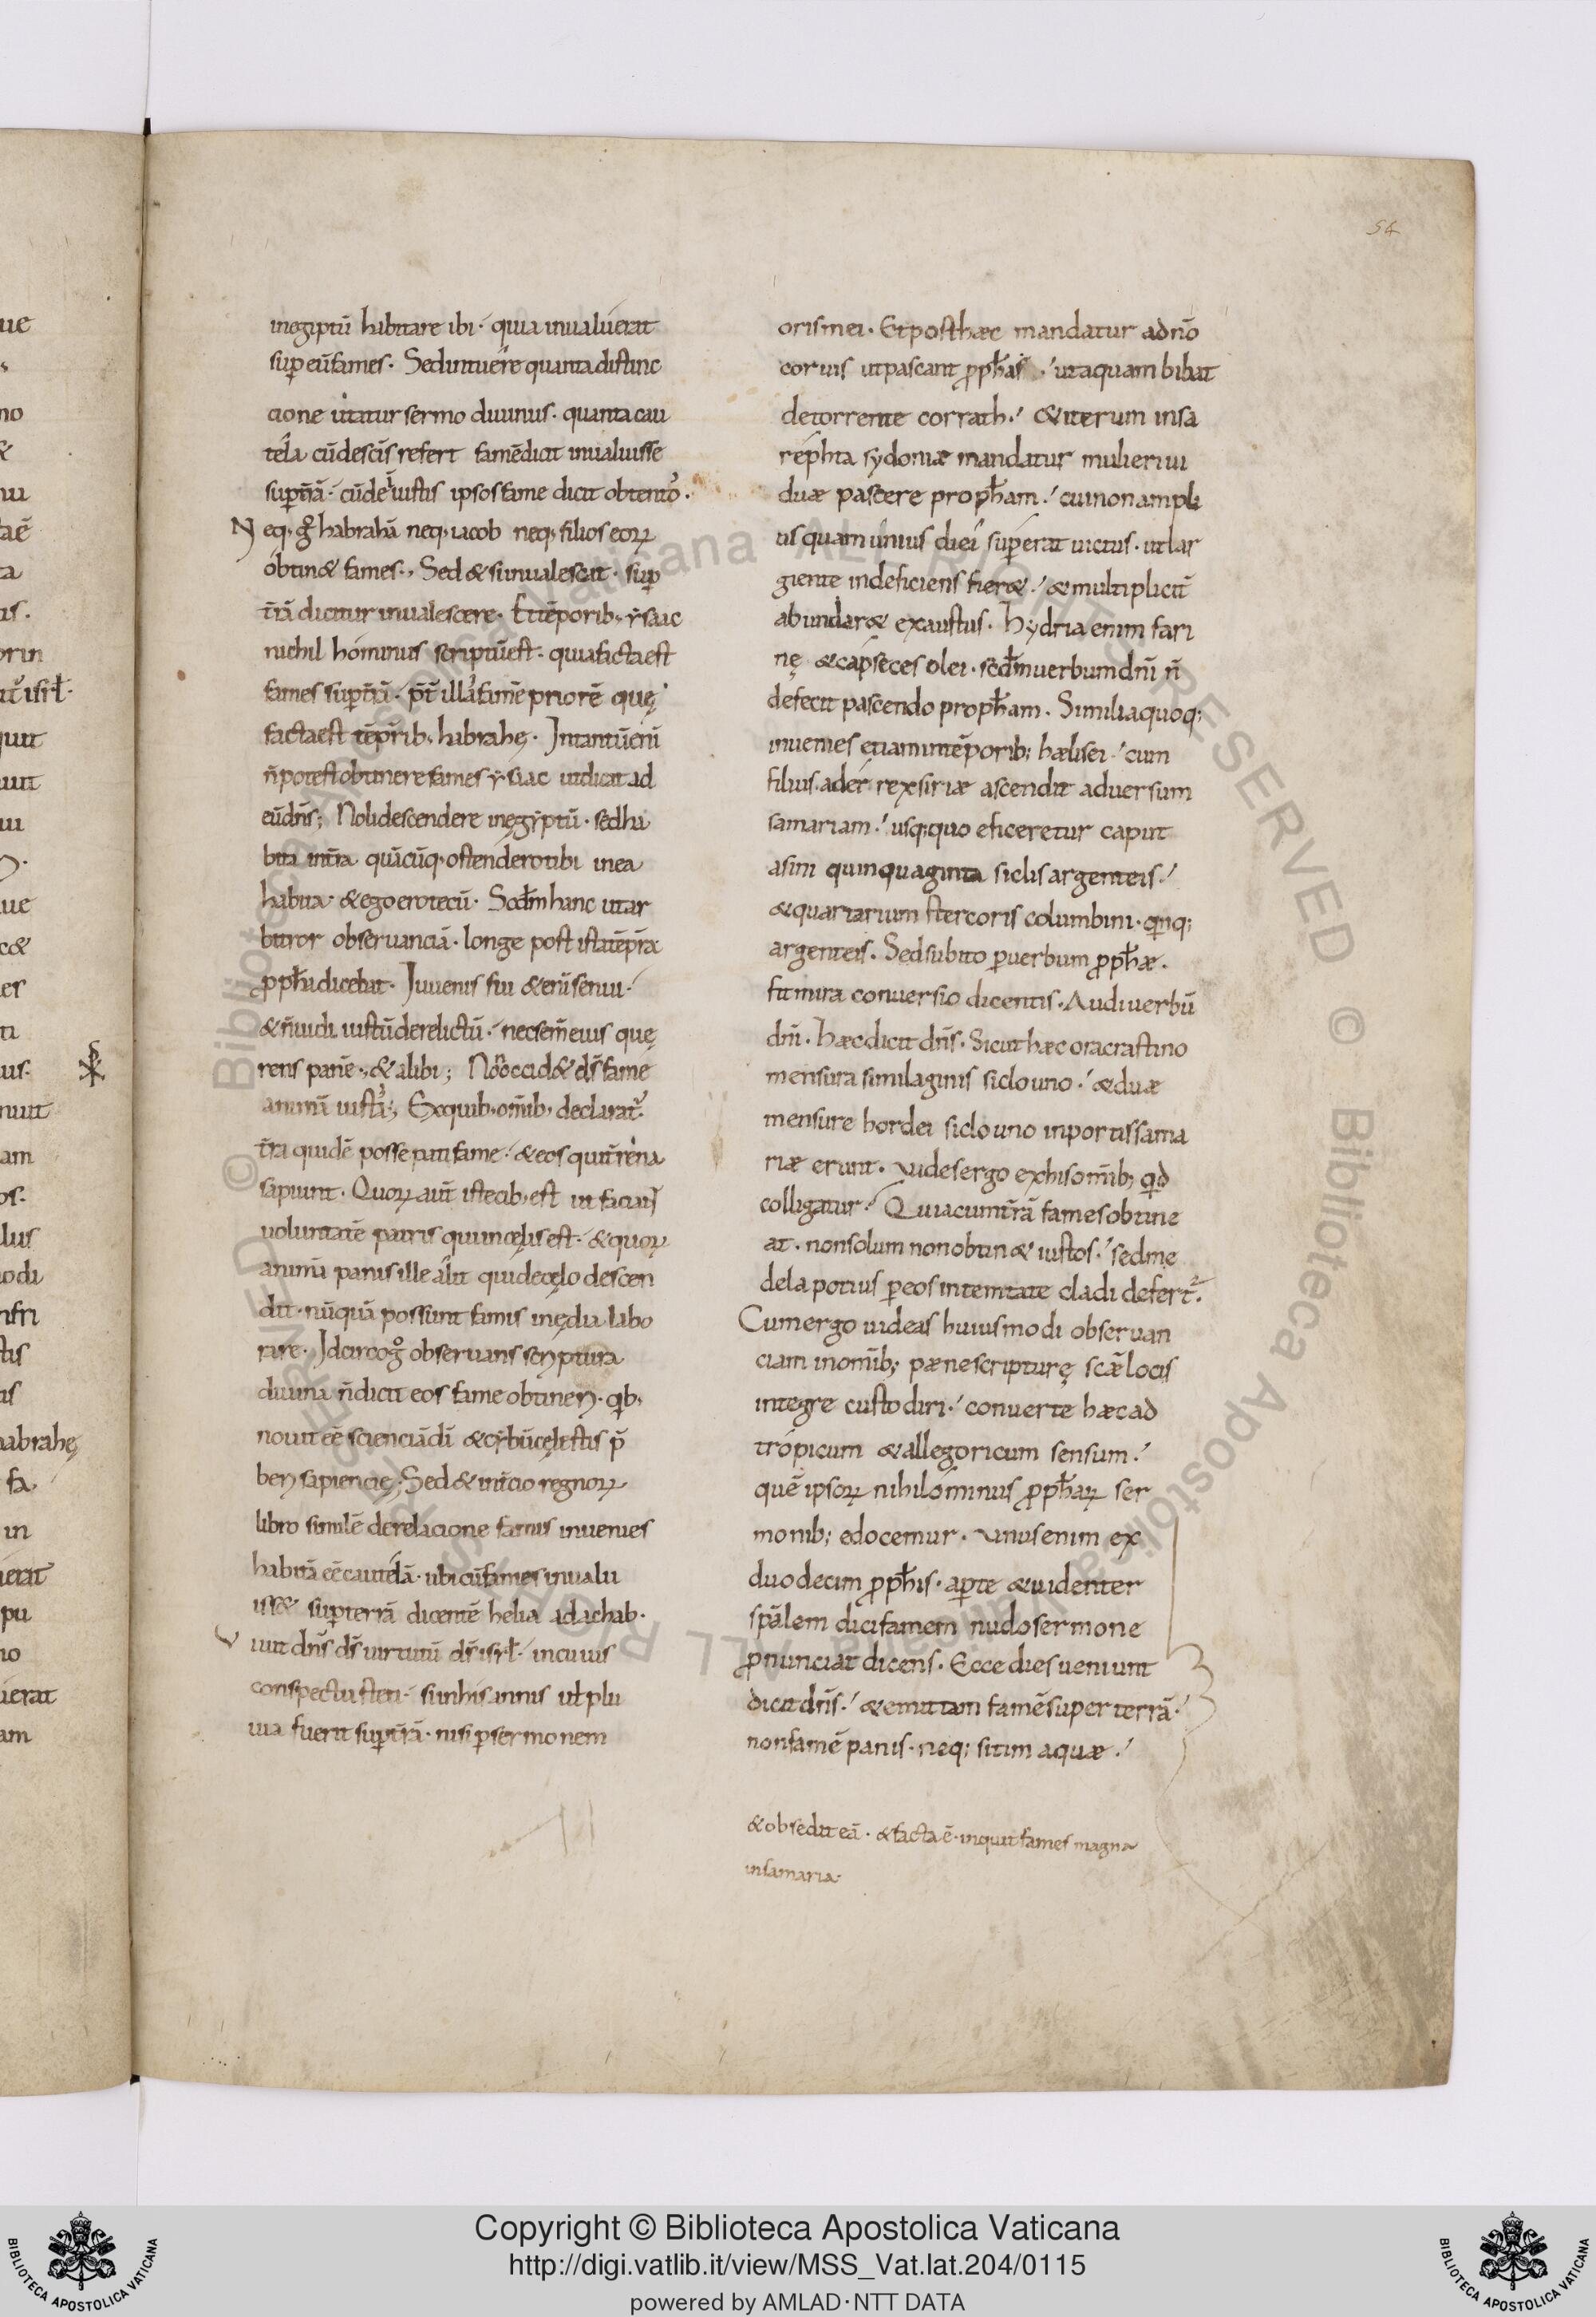 54
inegiptũ habitare ibi· quia inualuerat
sup eũ fames. Sed intuere quanta distinc
cione utatur sermo diuinus. quanta cau
tela cũ de scĩs refert famẽ dicit inualuisse
sup
Neq; habrahã neq; iacob neq; filios eoꝝ
obtin& fames., Sed & si inualescit. sup
t̃rã dicitur inualescere. Et tẽporib; ẏsaac
nichil hominus scriptũ est. quia facta est
fames sup t̃rã. p̃t illã famẽ priorẽ quę
facta est tẽporib; habrahę. In tantũ enĩ
ñ potest obtinere fames ẏsaac ut dicat ad
eũ dñs; Noli descendere in ęgẏptũ. sed ha
bita in t̃ra quãcũq; ostendero tibi in ea
habita. & ego ero tecũ. Scdm̃ hanc utar
bitror obseruanciã. longe post ista tẽpra
ꝓph̃a dicebat. Iuuenis fui & eniſ senui.
& ñ uidi iustũ derelictũ. nec sem̃ eius quę
rens panẽ., & alibi; Nõ occid& dñs fame
animã iusti., Ex quib; om̃ib; declarat̃.
t̃rã quidẽ posse pati fame. & eos qui t̃rena
sapiunt. Quoꝝ aut̃ iste cib; est ut faciant
uoluntatẽ patris qui in cęlis est. & quoꝝ
animã panis ille alit qui de cęlo descen
dit. nũquã possunt famis inędia labo
rare. Idcirco g̊ obseruans scriptura
diuina ñ dicit eos fame obtineri. qib;
nouit eẽ scienciã dĩ & cẏbũ cęlestis p̃
beri sapiencię; Sed & in tercio regnoꝝ
libro similẽ de relacione famis inuenies
habitã eẽ cautelã. ubi cũ fames inualu
iss& sup terrã dicentẽ helia ad achab.
uiuit dñs ds̃ uirtutũ ds̃ isrł. in cuius
conspectu steti. si in his annis uł plu
uia fuerit sup t̃rã. nisi p sermonem
oris mei. Et post hæc mandatur a dñõ
coruis ut pascant ꝓph̃as. ut aquam bibat
de torrente corrath. & iterum in sa
rephta sydoniæ mandatur mulieri ui
duæ pascere proph̃am. cui non ampli
us quam unius diei superat uictus. ut lar
giente indeficiens fier&. & multiplicit̃
abundar& exaustus. hydria enim fari
nę & capseces olei. scdm̃ uerbum dnĩ ñ
defecit pascendo proph̃am. Similia quoq;
inuenies etiam in tẽporib; hælisei. cum
filius ader rex siriæ ascendit aduersum
samariam. usq; quo eficeretur caput
asini quinquaginta siclis argenteis.
& quartarium stercoris columbini. qinq;
argenteis. Sed subito p uerbum ꝓph̃æ.
fit mira conuersio dicentis. Audi uerbũ
dnĩ. hæc dicit dñs. Sicut hæc ora crastino
mensura similaginis siclo uno. & duæ
mensure hordei siclo uno in portis sama
riæ erunt. uides ergo ex his om̃ib; qid
colligatur. Quia cum t̃rã fames obtine
at. non solum non obtin& iustos. sed me
dela potius p eos intemtate cladi defert̃.
Cum ergo uideas huiusmodi obseruan
ciam in om̃ib; pæne scripturę scæ locis
integre custodiri. conuerte hæc ad
tropicum & allegoricum sensum.
quẽ ipsoꝝ nihilominus ꝓph̃aꝝ ser
monib; edocemur. unus enim ex
duodecim ꝓph̃is. apte & uidenter
spãlem dici famem nudo sermone
ꝓnunciat dicens. Ecce dies ueniunt
dicit dñs. & emittam famẽ super terrã.
non famẽ panis. neq; sitim aquæ.
& obsedit eã. & facta ẽ. inquit fames magna
in samaria.
Copyright © Biblioteca Apostolica Vaticana
http://digi.vatlib.it/view/MSS_Vat.lat.204/0115
powered by AMLAD·NTT DATA
BIBLIOTECA APOSTOLICA VATICANA
BIBLIOTECA APOSTOLICA VATICANA
© Biblioteca Apostolica Vaticana ALL RIGHTS RESERVED